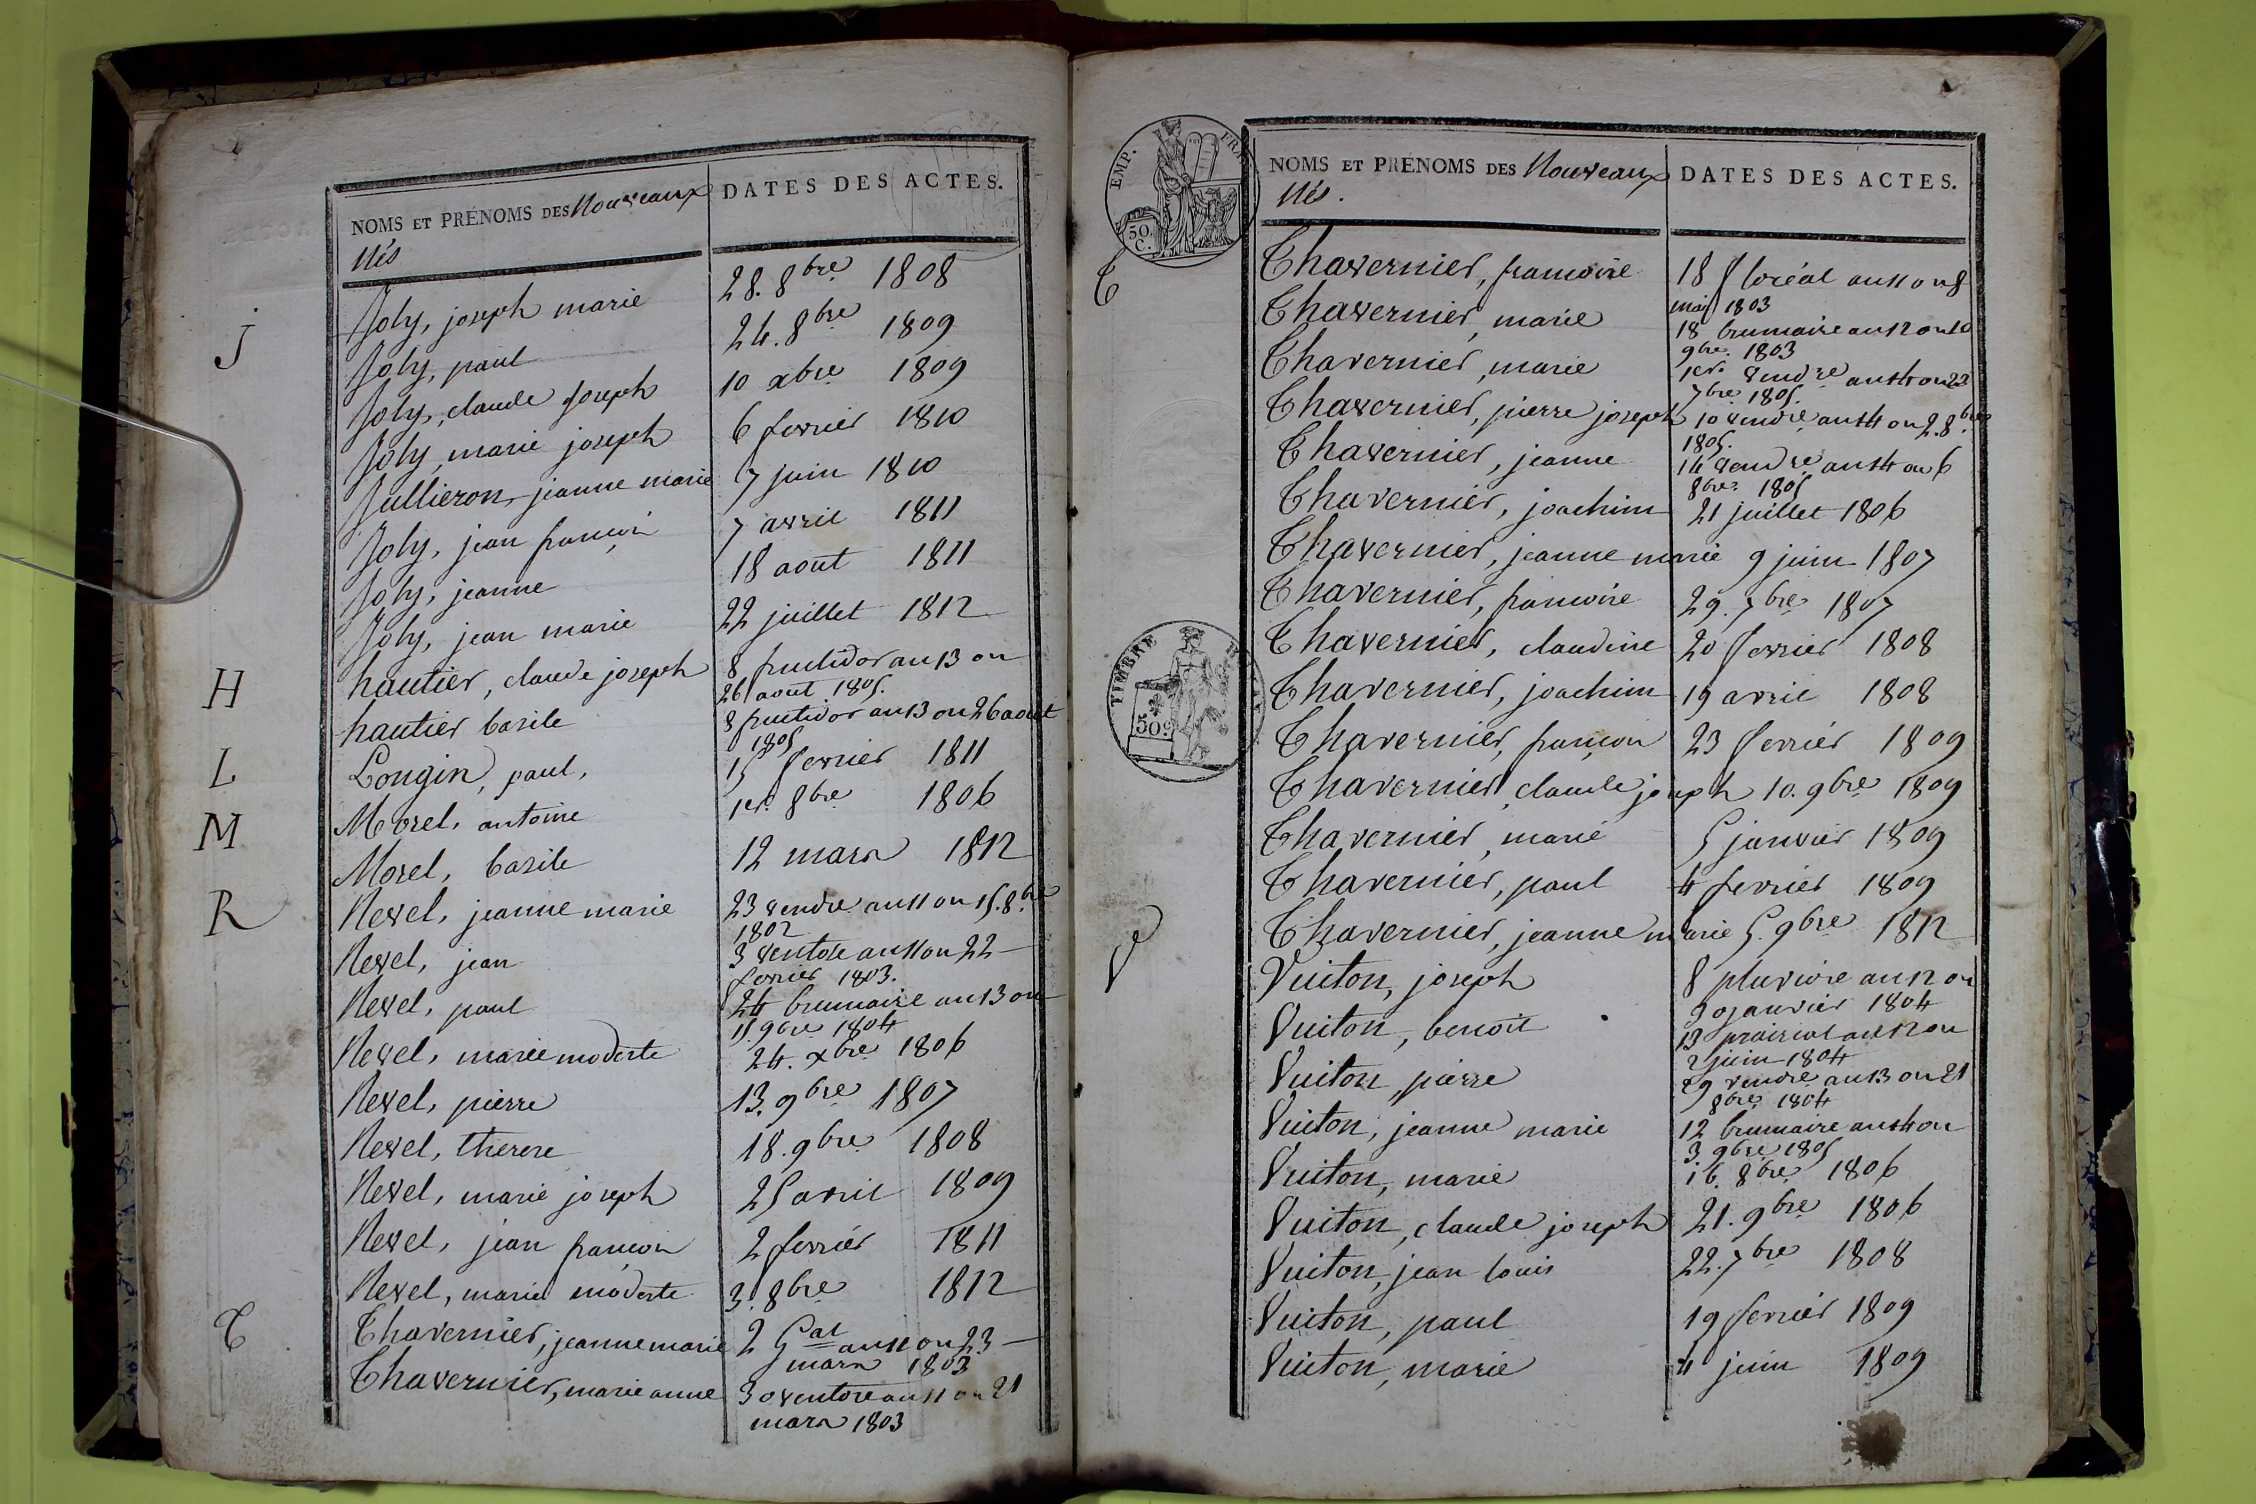 NOMS ET PRÉNOMS DES Nouveaux DATES DES ACTES.
Nés
J
Joly, joseph marie 28. 8bre 1808
Joly, paul 24. 8bre 1809
Joly, claude joseph 10 xbre 1809
Joly, marie joseph 6 fevrier 1810
Jullieron, jeanne marie 7 juin 1810
Joly, jean françois 7 avril 1811
Joly, jeanne 18 aout 1811
Joly, jean marie 22 juillet 1812
H
hautier, claude joseph 8 fructidor an 13 ou
26 aout 1805.
hautier basile 8 fructidor an 13 ou 26 aout
1805
L
Longin, paul, 15 fevrier 1811
M
Morel, antoine 1er. 8bre 1806
Morel, basile 12 mars 1812
R
Revel, jeanne marie 23 vendre an 11 ou 15. 8bre
1802
Revel, jean 3 ventose an 11 ou 22
fevrier 1803.
Revel, paul 24 brumaire an 13 ou
15. 9bre 1804
Revel, marie modeste 24. xbre 1806
Revel, pierre 13. 9bre 1807
Revel, therese 18. 9bre 1808
Revel, marie joseph 25 avril 1809
Revel, jean françois 2 fevrier 1811
Revel, marie modeste 3. 8bre 1812
T
Thavernier, jeanne marie 2 Gal an 11 ou 23
mars 1803
Thavernier, marie anne 30 ventose an 11 ou 21
mars 1803
EMP. FR
50
C.
NOMS ET PRÉNOMS DES Nouveaux DATES DES ACTES.
Nés.
T
Thavernier, françoise 18 floréal an 11 ou 8
mai 1803
Thavernier, marie 18 brumaire an 12 ou 10
9bre. 1803
Thavernier, marie 1er. vendre an 14 ou 23
7bre 1805.
Thavernier, pierre joseph 10 vendre an 14 ou 2. 8bre
1805.
Thavernier, jeanne 14 vendre an 14 ou 6
8bre 1805
Thavernier, joachim 21 juillet 1806
Thavernier, jeanne marie 9 juin 1807
Thavernier, françoise 29. 7bre 1807
TIMBRE
50 c
Thavernier, claudine 20 fevrier 1808
Thavernier, joachim 19 avril 1808
Thavernier, françois 23 fevrier 1809
Thavernier, claude joseph 10. 9bre 1809
Thavernier, marie 5 janvier 1809
Thavernier, paul 4 fevrier 1809
Thavernier, jeanne marie 5. 9bre 1812
V
Vuiton, joseph 8 pluviose an 12 ou
30 janvier 1804
Vuiton, benoit 13 prairial an 12 ou
2 juin 1804
Vuiton, pierre 29 vendre an 13 ou 21
8bre 1804
Vuiton, jeanne marie 12 brumaire an 14 ou
3 9bre 1805
Vuiton, marie 16. 8bre 1806
Vuiton, claude joseph 21. 9bre 1806
Vuiton, jean louis 22. 7bre 1808
Vuiton, paul 19 fevrier 1809
Vuiton, marie 4 juin 1809